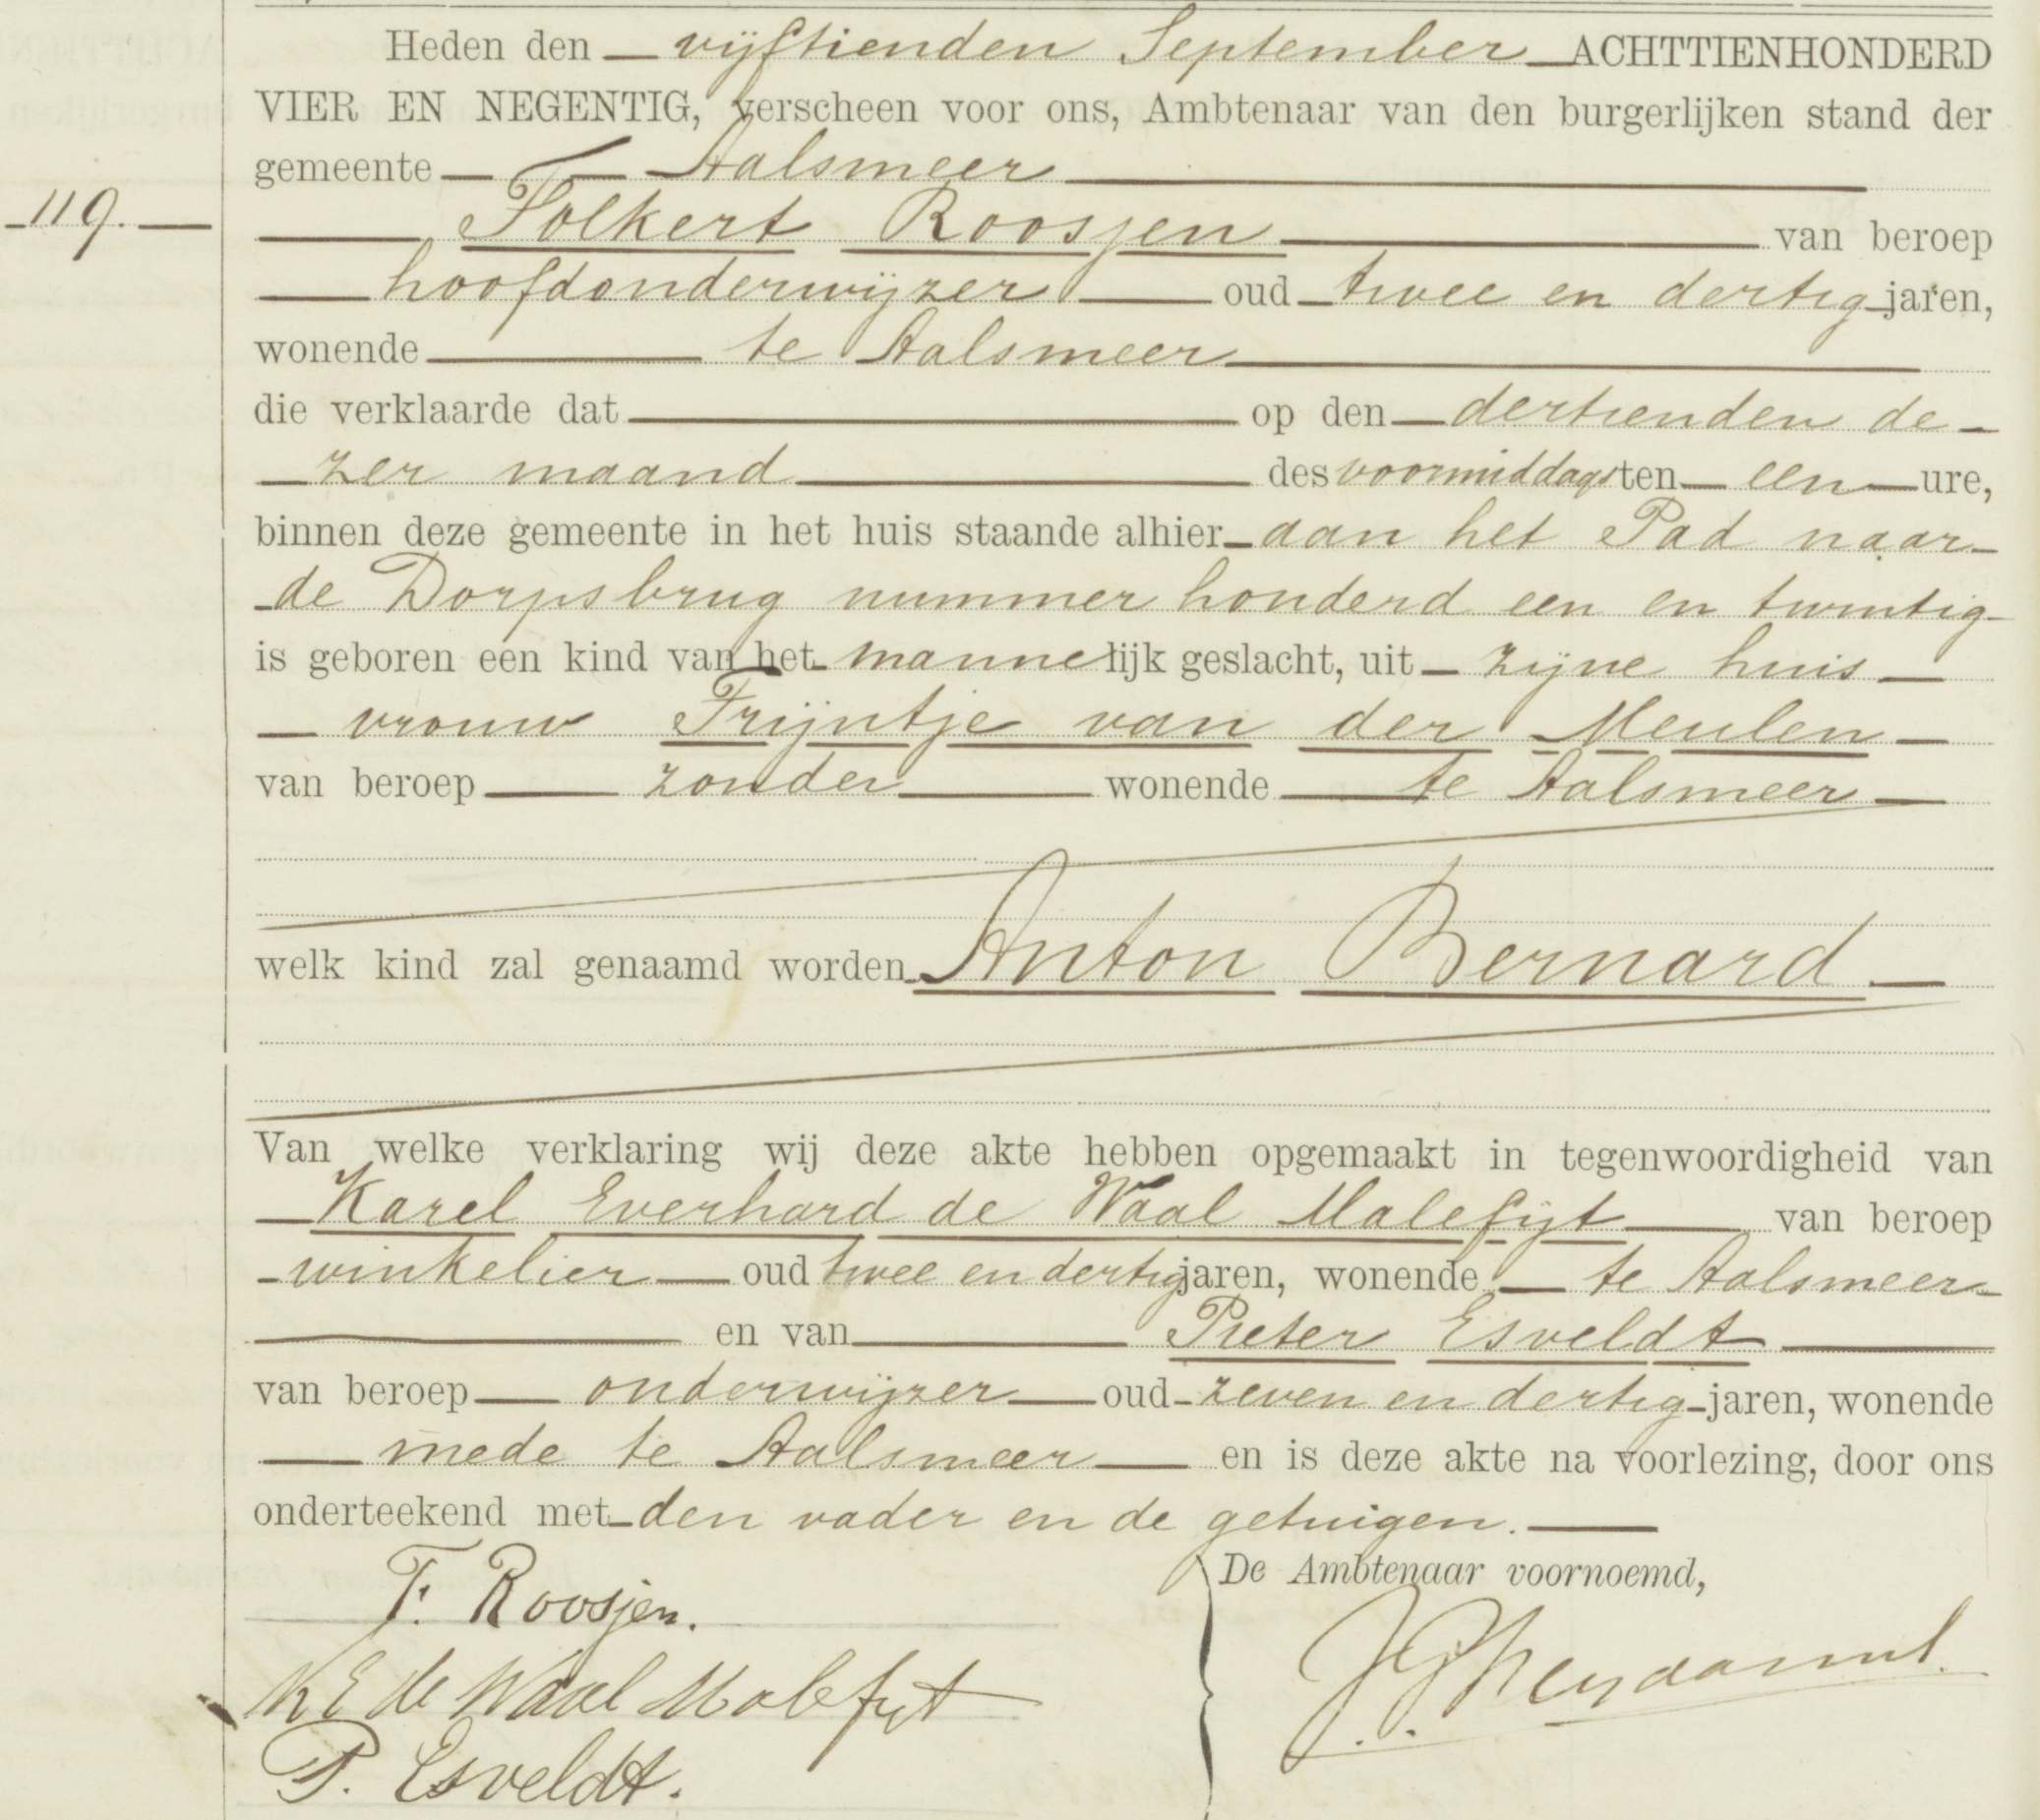 Heden den vijftienden September ACHTTIENHONDERD
VIER EN NEGENTIG, verscheen voor ons, Ambtenaar van den burgerlijken stand der
gemeente Aalsmeer
119. Folkert Roosjen van beroep
hoofdonderwijzer oud twee en dertig jaren,
wonende te Aalsmeer
die verklaarde dat op den dertienden de-
zer maand des voormiddags ten een ure,
binnen deze gemeente in het huis staande alhier aan het Pad naar
de Dorpsbrug nummer honderd een en twintig
is geboren een kind van het mannelijk geslacht, uit zijne huis-
vrouw Trijntje van der Meulen
van beroep zonder wonende te Aalsmeer
welk kind zal genaamd worden Anton Bernard
Van welke verklaring wij deze akte hebben opgemaakt in tegenwoordigheid van
Karel Everhard de Waal Malefijt van beroep
winkelier oud twee en dertig jaren, wonende te Aalsmeer
en van Pieter Esveldt
van beroep onderwijzer oud zeven en dertig jaren, wonende
mede te Aalsmeer en is deze akte na voorlezing, door ons
onderteekend met den vader en de getuigen.
De Ambtenaar voornoemd,
F. Roosjen.
K E de Waal Malefijt
P. Esveldt.